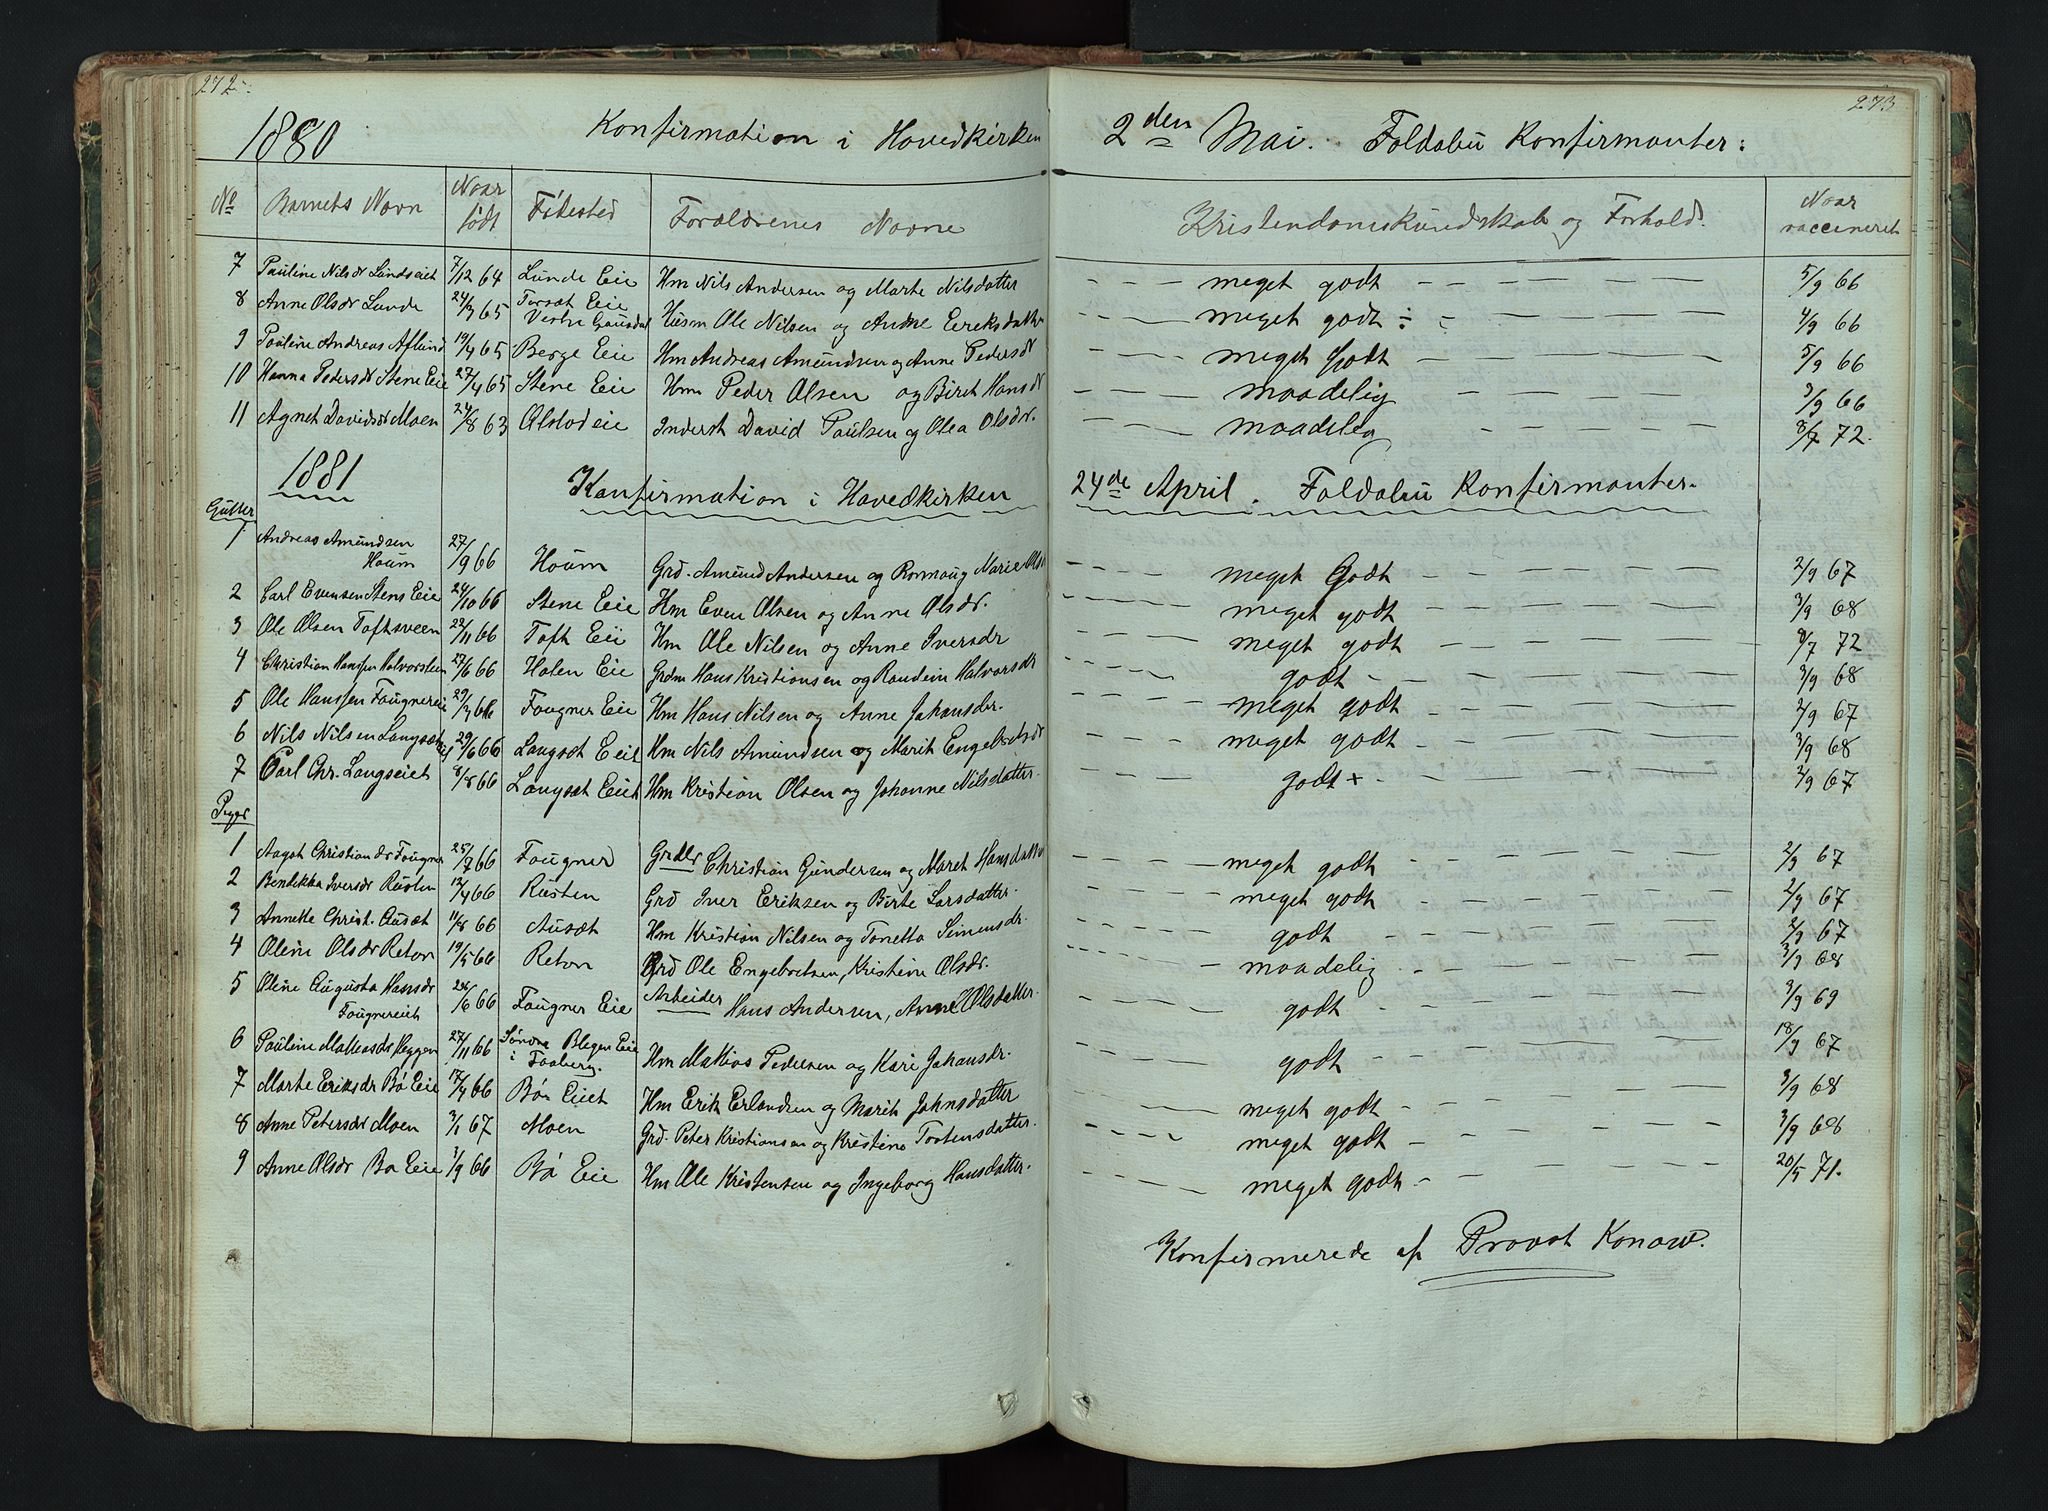 272
273
1880 Konfirmation i Hovedkirken 2den Mai. Foldabu Konfirmanter:
No Barnets Navn Naar født Fødested Forældrenes Navne Kristendomskundskab og Forhold. Naar vaccineret
7 Pauline Nilsdr Lundseiet 7/12 64 Lunde Eie Hm Nils Andersen og Marte Nilsdatter meget godt 5/9 66
8 Anne Olsdr Lunde 24/3 65 Torsæt Eie Vestre Gausdal Husm Ole Nilsen og Anne Eeriksdatter meget godt ÷ 4/9 66
9 Pauline Andreas Aflund 19/4 65 Berge Eie Hm Andreas Amundsen og Anne Pedersdr meget Godt 5/9 66
10 Hanna Pedersdr Stene Eie 27/4 65 Stene Eie Hm Peder Olsen og Biret Hansdr maadelig 3/9 66
11 Agnet Davidsdr Moen 24/8 63 Olstadeie Inderst David Paulsen og Olea Olsdr. maadeleg 8/7 72.
1881 Konfirmation i Hovedkirken 24de April. Foldabu Konfirmanter.
Gutter
1 Andreas Amundsen
Houm 27/9 66 Houm Grd. Amund Andersen og Ronnaug Marie Ols meget Godt 2/9 67
2 Carl Evensen Stens Eie 24/10 66 Stene Eie Hm Even Olsen og Anne Olsdr. meget godt 3/9 68
3 Ole Olsen Toftsveen 23/11 66 Toft Eie Hm Ole Nilsen og Anne Iversdr meget godt 8/7 72
4 Christian Hanssen Halvorsteen 27/6 66 Holen Eie Grdm Hans Kristiansen og Randein Halvorsdr godt 3/9 68
5 Ole Hanssen Fougnereie 29/3 66 Fougner Eie Hm Hans Nilsen og Anne Johansdr. meget godt 2/9 67
6 Nils Nilsen Langsæt 29/6 66 Langsæt Eie Hm Nils Amundsen og Marit Engebretsdr meget godt 3/9 68
7 Carl Chr. Langseiet 8/8 66 Langsæt Eiet Hm Kristian Olsen og Johanne Nilsdatter. godt + 2/9 67
Piger
1 Aagot Christiandr Fougner 25/7 66 Fougner Grdbr Christian Gundersen og Maret Hansdatter meget godt 2/9 67
2 Bendikka Iversdr Rusten 12/4 66 Rusten Grd Iver Eriksen og Birte Larsdatter. meget godt 2/9 67
3 Annette Christ. Ausæt 11/8 66 Ausæt Hm Kristian Nilsen og Tonetta Simensdr. godt 2/9 67
4 Oline Olsdr Retvn 19/5 66 Retvn Grd Ole Engebretsen, Kristine Olsdr. maadelig 3/9 68
5 Oline Augusta Hansdr
Fougnereiet 26/6 66 Fougner Eie Arbeider Hans Andersen, Anne Olsdatter. godt 3/9 69
6 Pauline Matiasdr Heggen 27/11 66 Søndre Blegen Eie i Faaberg. Hm Mathias Pedersen og Kari Johansdr. godt 18/9 67
7 Marte Eriksdr Bø Eie 17/4 66 Bø Eiet Hm Erik Erlandsen og Marit Johnsdatter meget godt 3/9 68
8 Anne Petersdr Moen 3/1 67 Moen Grd. Peter Kristiansen og Kristine Tostensdatter. meget godt 3/9 68
9 Anne Olsdr Bø Eie 3/9 66 Bø Eie Hm Ole Kristensen og Ingeborg Hansdatter. meget godt 20/5 71.
Konfirmerede af Provst Konow.